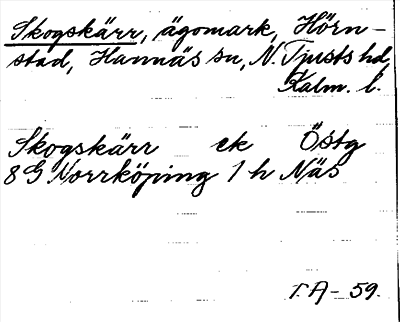 Skogskärr, ägomark, Hörn-
stad, Hannäs sn, N. Tjusts hd,
Kalm. l.
Skogskärr ek Östg
8G Norrköping 1 h Näs
T.A - 59.